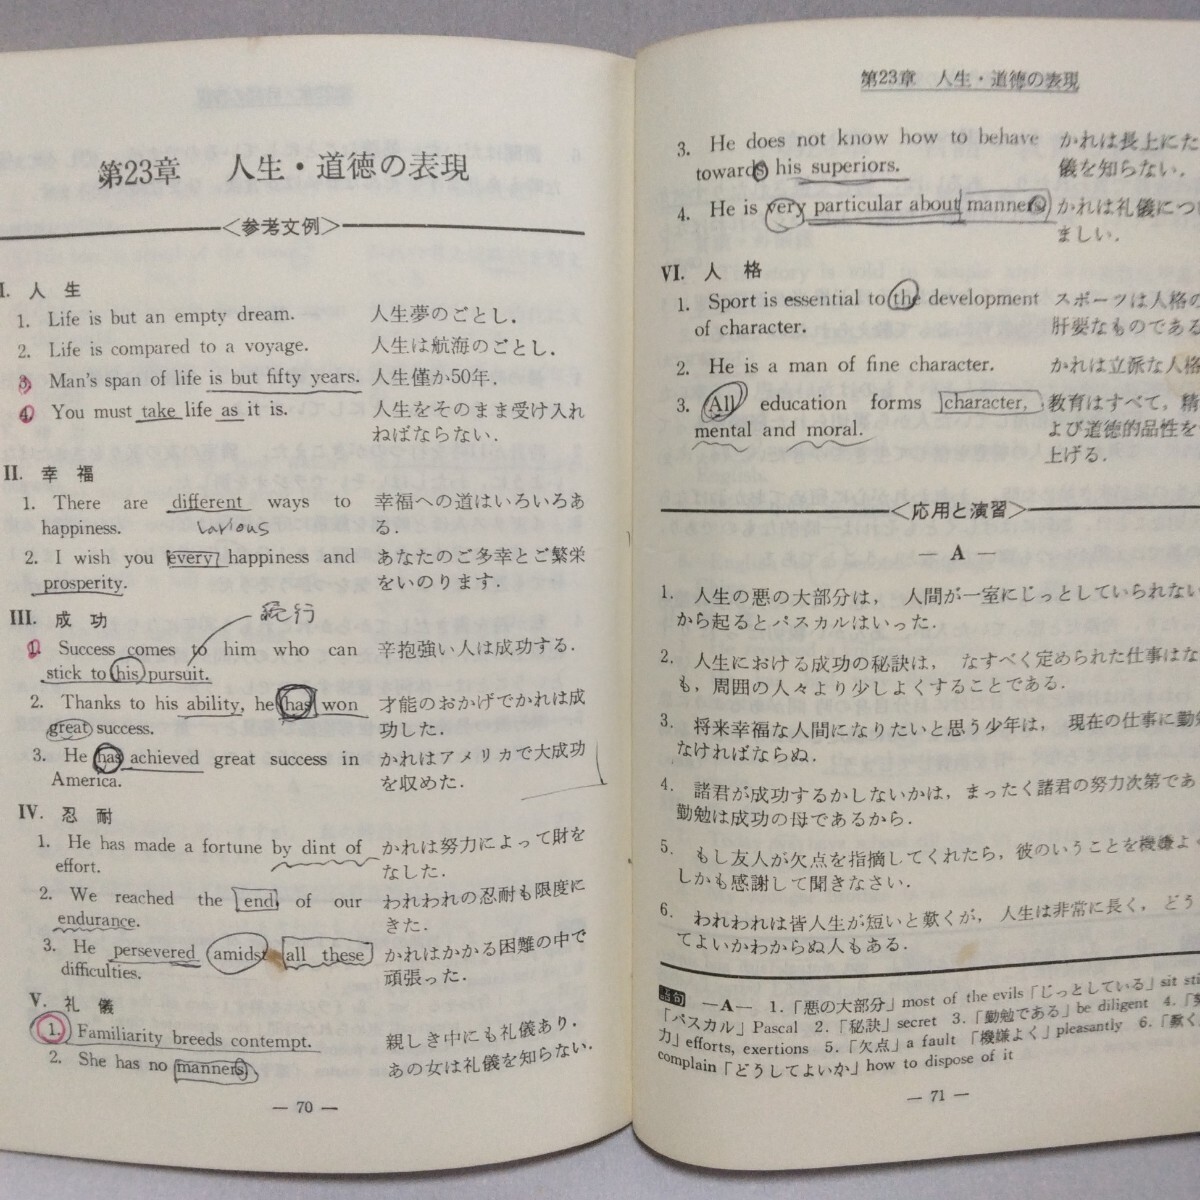 第23章 人生・道徳の表現
<参考文例>
I. 人生
1. Life is but an empty dream. 人生夢のごとし.
2. Life is compared to a voyage. 人生は航海のごとし.
3. Man's span of life is but fifty years. 人生僅か50年.
4. You must take life as it is. 人生をそのまま受け入れ
ねばならない.
II. 幸福
1. There are different ways to 幸福への道はいろいろあ
happiness. various る.
2. I wish you every happiness and あなたのご多幸とご繁栄
prosperity. をいのります.
III. 成功
続行
1. Success comes to him who can 辛抱強い人は成功する.
stick to his pursuit.
2. Thanks to his ability, he has won 才能のおかげでかれは成
great success. 功した.
3. He has achieved great success in かれはアメリカで大成功
America. を収めた.
IV. 忍耐
1. He has made a fortune by dint of かれは努力によって財を
effort. なした.
2. We reached the end of our われわれの忍耐も限度に
endurance. きた.
3. He persevered amidst all these かれはかかる困難の中で
difficulties. 頑張った.
V. 礼儀
1. Familiarity breeds contempt. 親しき中にも礼儀あり.
2. She has no manners. あの女は礼儀を知らない.
— 70 —
第23章 人生・道徳の表現
3. He does not know how to behave かれは長上にた
towards his superiors. 儀を知らない.
4. He is very particular about manners. かれは礼儀につ
ましい.
VI. 人格
1. Sport is essential to the development スポーツは人格の
of character. 肝要なものである
2. He is a man of fine character. かれは立派な人格
3. All education forms character, 教育はすべて, 精
mental and moral. よび道徳的品性を
上げる.
<応用と演習>
— A —
1. 人生の悪の大部分は, 人間が一室にじっとしていられない
から起るとパスカルはいった.
2. 人生における成功の秘訣は, なすべく定められた仕事はな
も, 周囲の人々より少しよくすることである.
3. 将来幸福な人間になりたいと思う少年は, 現在の仕事に勤勉
なければならぬ.
4. 諸君が成功するかしないかは, まったく諸君の努力次第であ
勤勉は成功の母であるから.
5. もし友人が欠点を指摘してくれたら, 彼のいうことを機嫌よ
しかも感謝して聞きなさい.
6. われわれは皆人生が短いと歎くが, 人生は非常に長く, どう
てよいかわからぬ人もある.
語句 —A— 1.「悪の大部分」most of the evils「じっとしている」sit sti
「パスカル」Pascal 2.「秘訣」secret 3.「勤勉である」be diligent 4.「努
力」efforts, exertions 5.「欠点」a fault 「機嫌よく」pleasantly 6.「歎く
complain「どうしてよいか」how to dispose of it
— 71 —